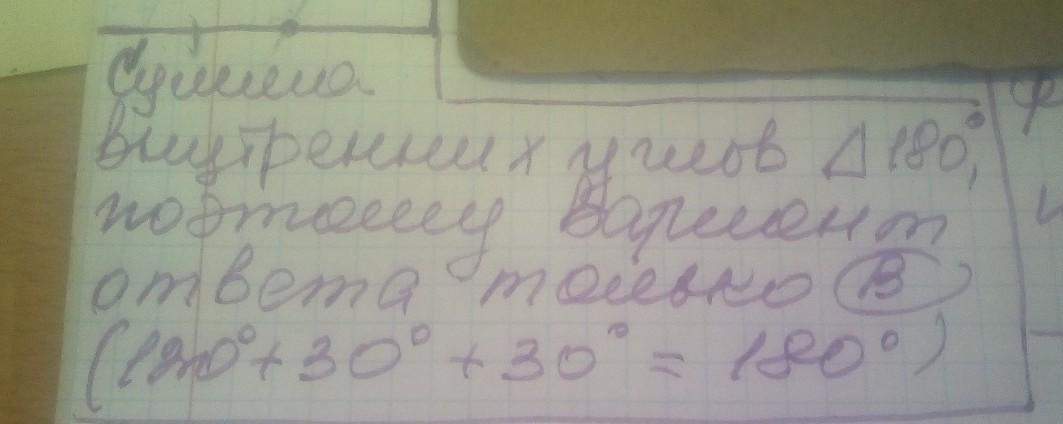 Сумма
внутренних углов Δ 180°,
поэтому вариант
ответа только В
(120° + 30° + 30° = 180°)
ф